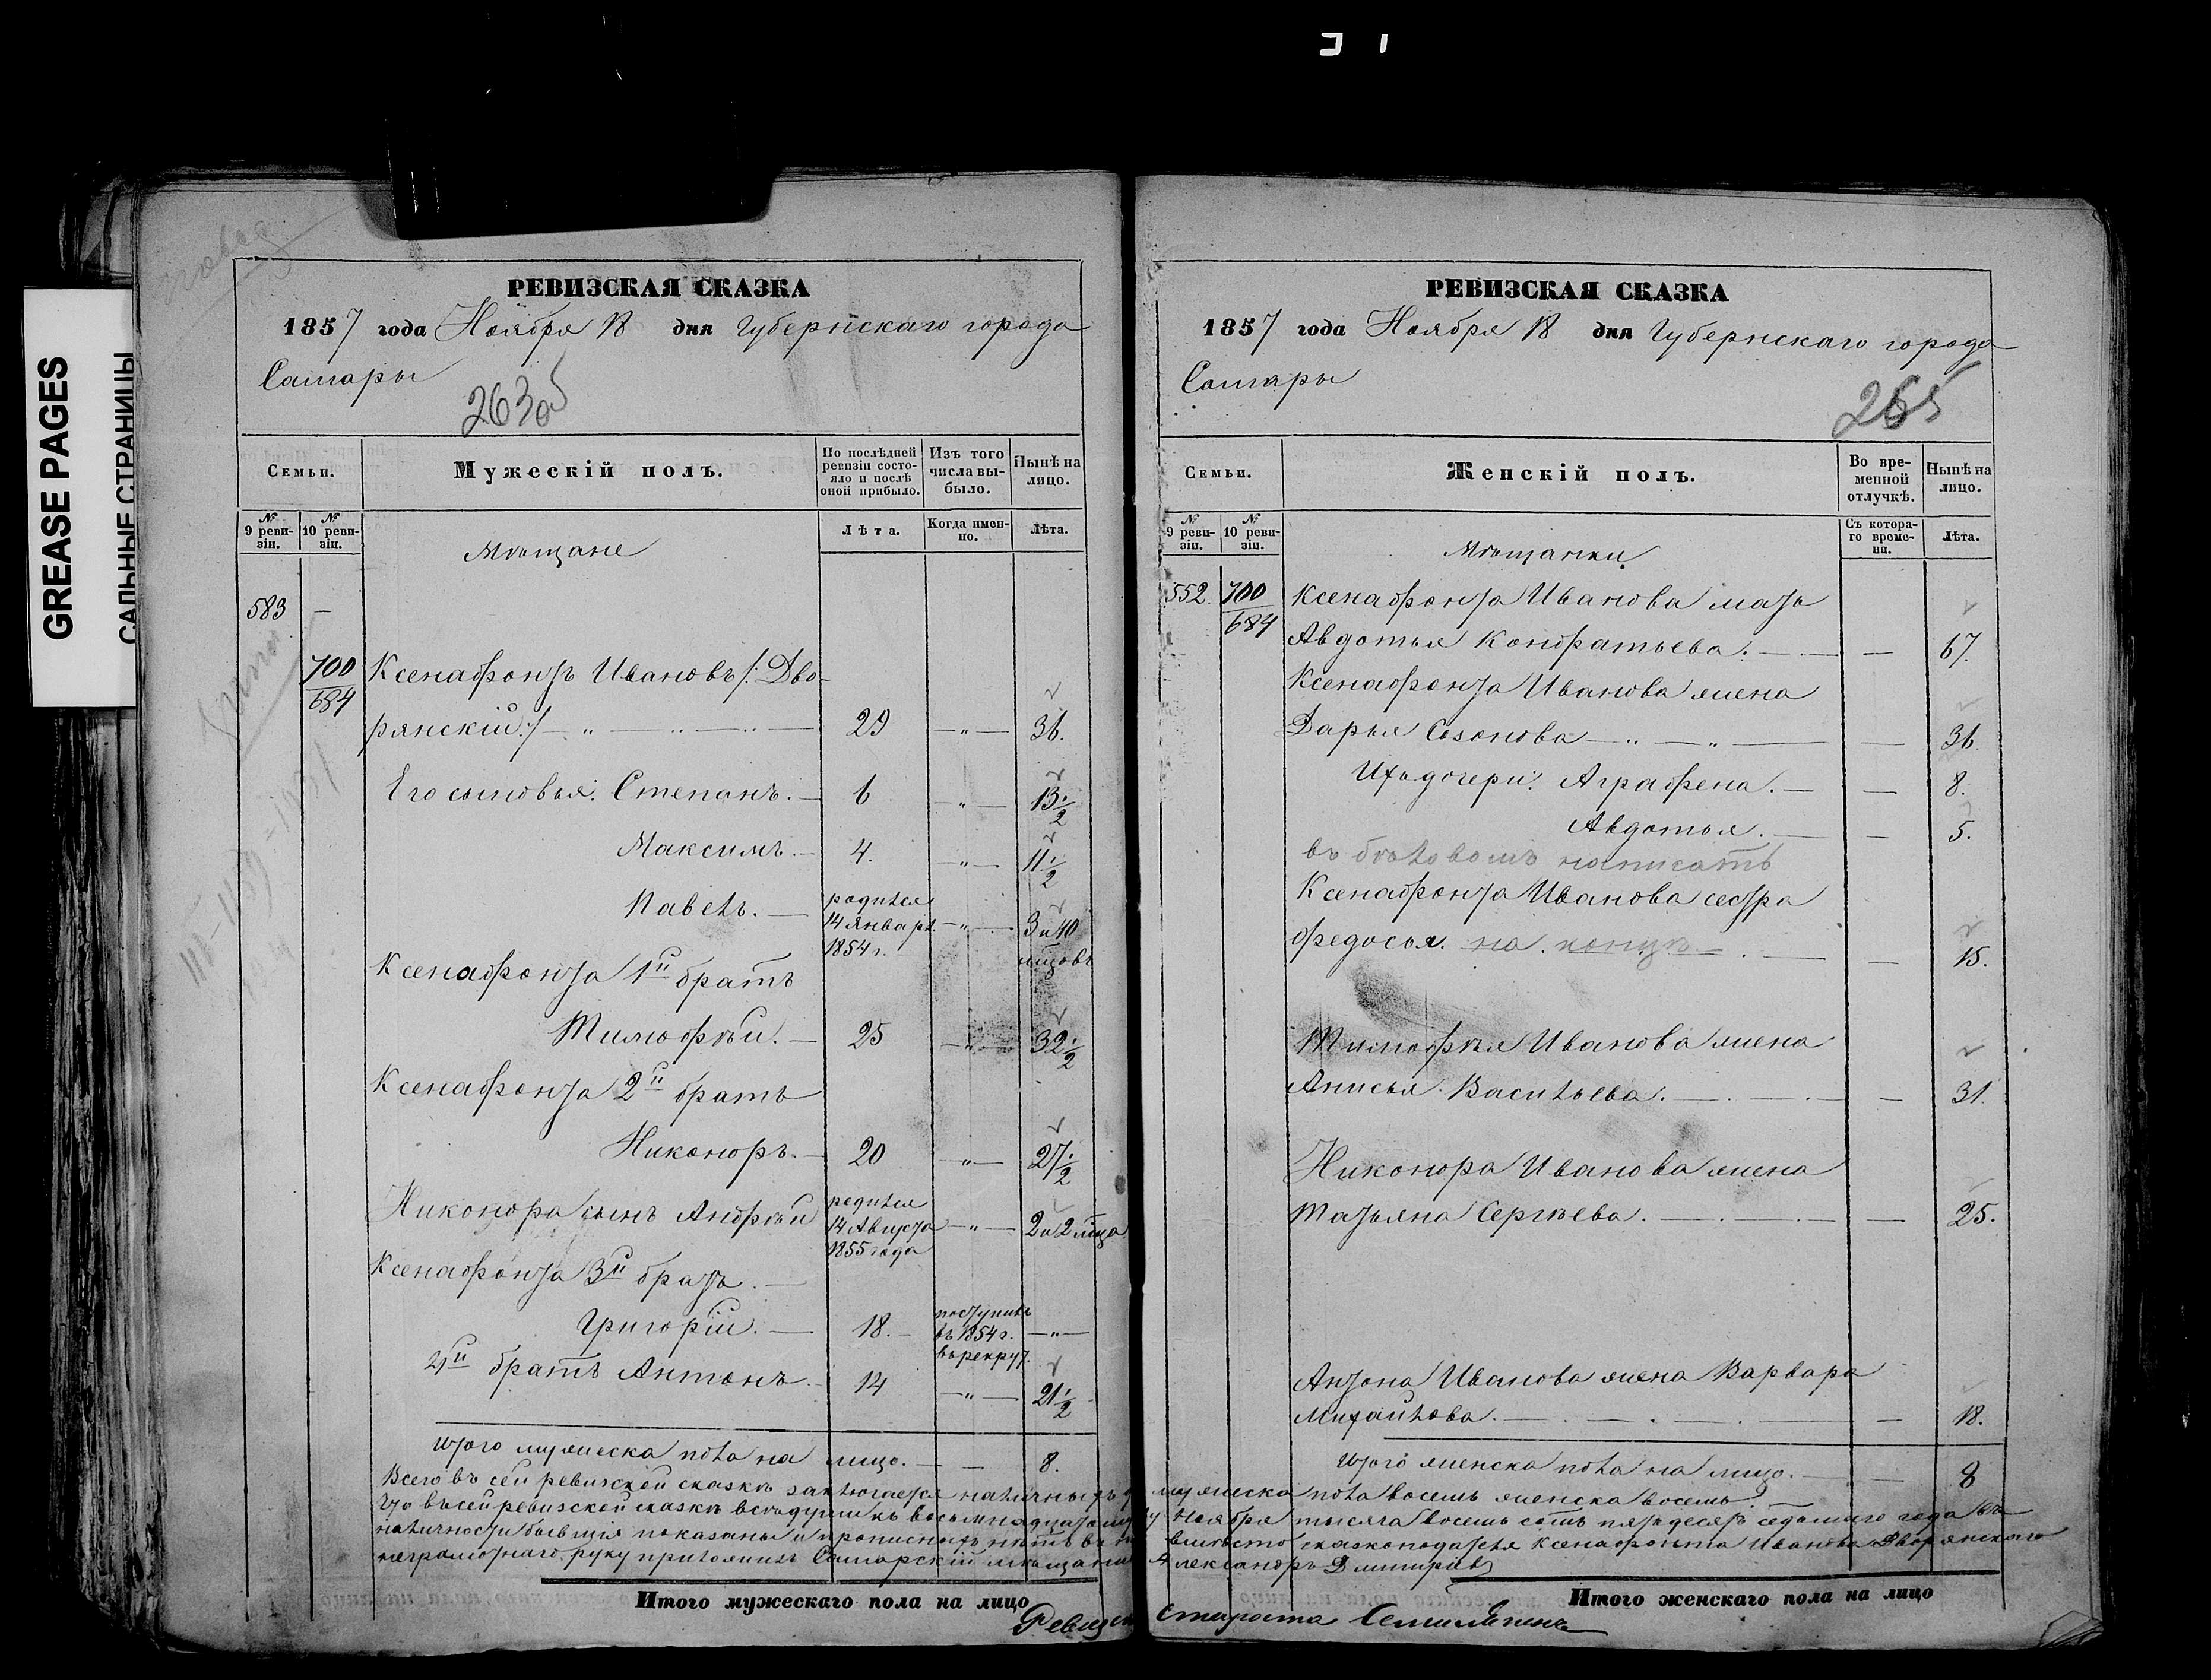 GREASE PAGES
САЛЬНЫЕ СТРАНИЦЫ
РЕВИЗСКАЯ СКАЗКА
1857 года Ноября 18 дня Губернскаго города
Самары
263об
Семьи.
Мужескій полъ.
По послѣдней ревизіи состояло и послѣ оной прибыло.
Изъ того числа выбыло.
Нынѣ на лицо.
№ 9 реви-зіи.
№ 10 реви-зіи.
Лѣта.
Когда имен-но.
Лѣта.
Мѣщане
583 —
700
684
Ксенафонтъ Ивановъ /: Дво-
рянскій :/ — 29 — „ — 36.
Его сыновья: Степанъ. — 6 — „ — 13 1/2
Максимъ. — 4. — „ — 11 1/2
Павелъ. — родился 14 Января 1854 г. — „ — 3 и 10 мцовъ
Ксенафонта 1й братъ
Тимофѣй. — 25 — „ — 32 1/2
Ксенафонта 2й братъ
Никоноръ. — 20 — „ — 27 1/2
Никонора сынъ Андрѣй родился 14 Августа 1855 года — „ — 2 и 2 мца
Ксенафонта 3й братъ. —
Григорій. — 18. — поступилъ въ 1854 г. въ рекрут. — „ —
4й братъ Антонъ. — 14 — „ — 21 1/2
Итого мужеска пола на лицо. — — 8.
РЕВИЗСКАЯ СКАЗКА
1857 года Ноября 18 дня Губернскаго города
Самары
265
Семьи.
Женскій полъ.
Во вре-менной отлучкѣ.
Нынѣ на лицо.
№ 9 реви-зіи.
№ 10 реви-зіи.
Съ котора-го време-ни.
Лѣта.
Мѣщанки
552. 700
684
Ксенафонта Иванова мать
Авдотья Кондратьева. — — 67.
Ксенафонта Иванова жена
Дарья Созонова — „ — „ — — 36.
Ихъ дочери: Аграфена. — — 8.
Авдотья. — — 5.
въ бѣловомъ написать
Ксенафонта Иванова сестра
Федосья. на концѣ — — 15.
Тимофѣя Иванова жена
Анисья Васильева. — — 31.
Никонора Иванова жена
Татьяна Сергѣева. — — 25.
Антона Иванова жена Варвара
Михайлова. — — 18.
Итого женска пола на лицо. — 8
Всего въ сей ревизской сказкѣ заключается наличныхъ мужеска пола восемь женска восемь.
Что въ сей ревизской сказкѣ всѣ души къ восьмнадцатому Ноября тысяча восемь сотъ пятьдесятъ седьмаго года въ
наличности бывшія показаны и прописныхъ нѣтъ въ вмѣсто сказкоподателя Ксенафонта Иванова Дворянскаго
неграмотнаго руку приложилъ Самарскій мѣщанинъ Александръ Дмитріевъ
Итого мужескаго пола на лицо
Итого женскаго пола на лицо
Староста